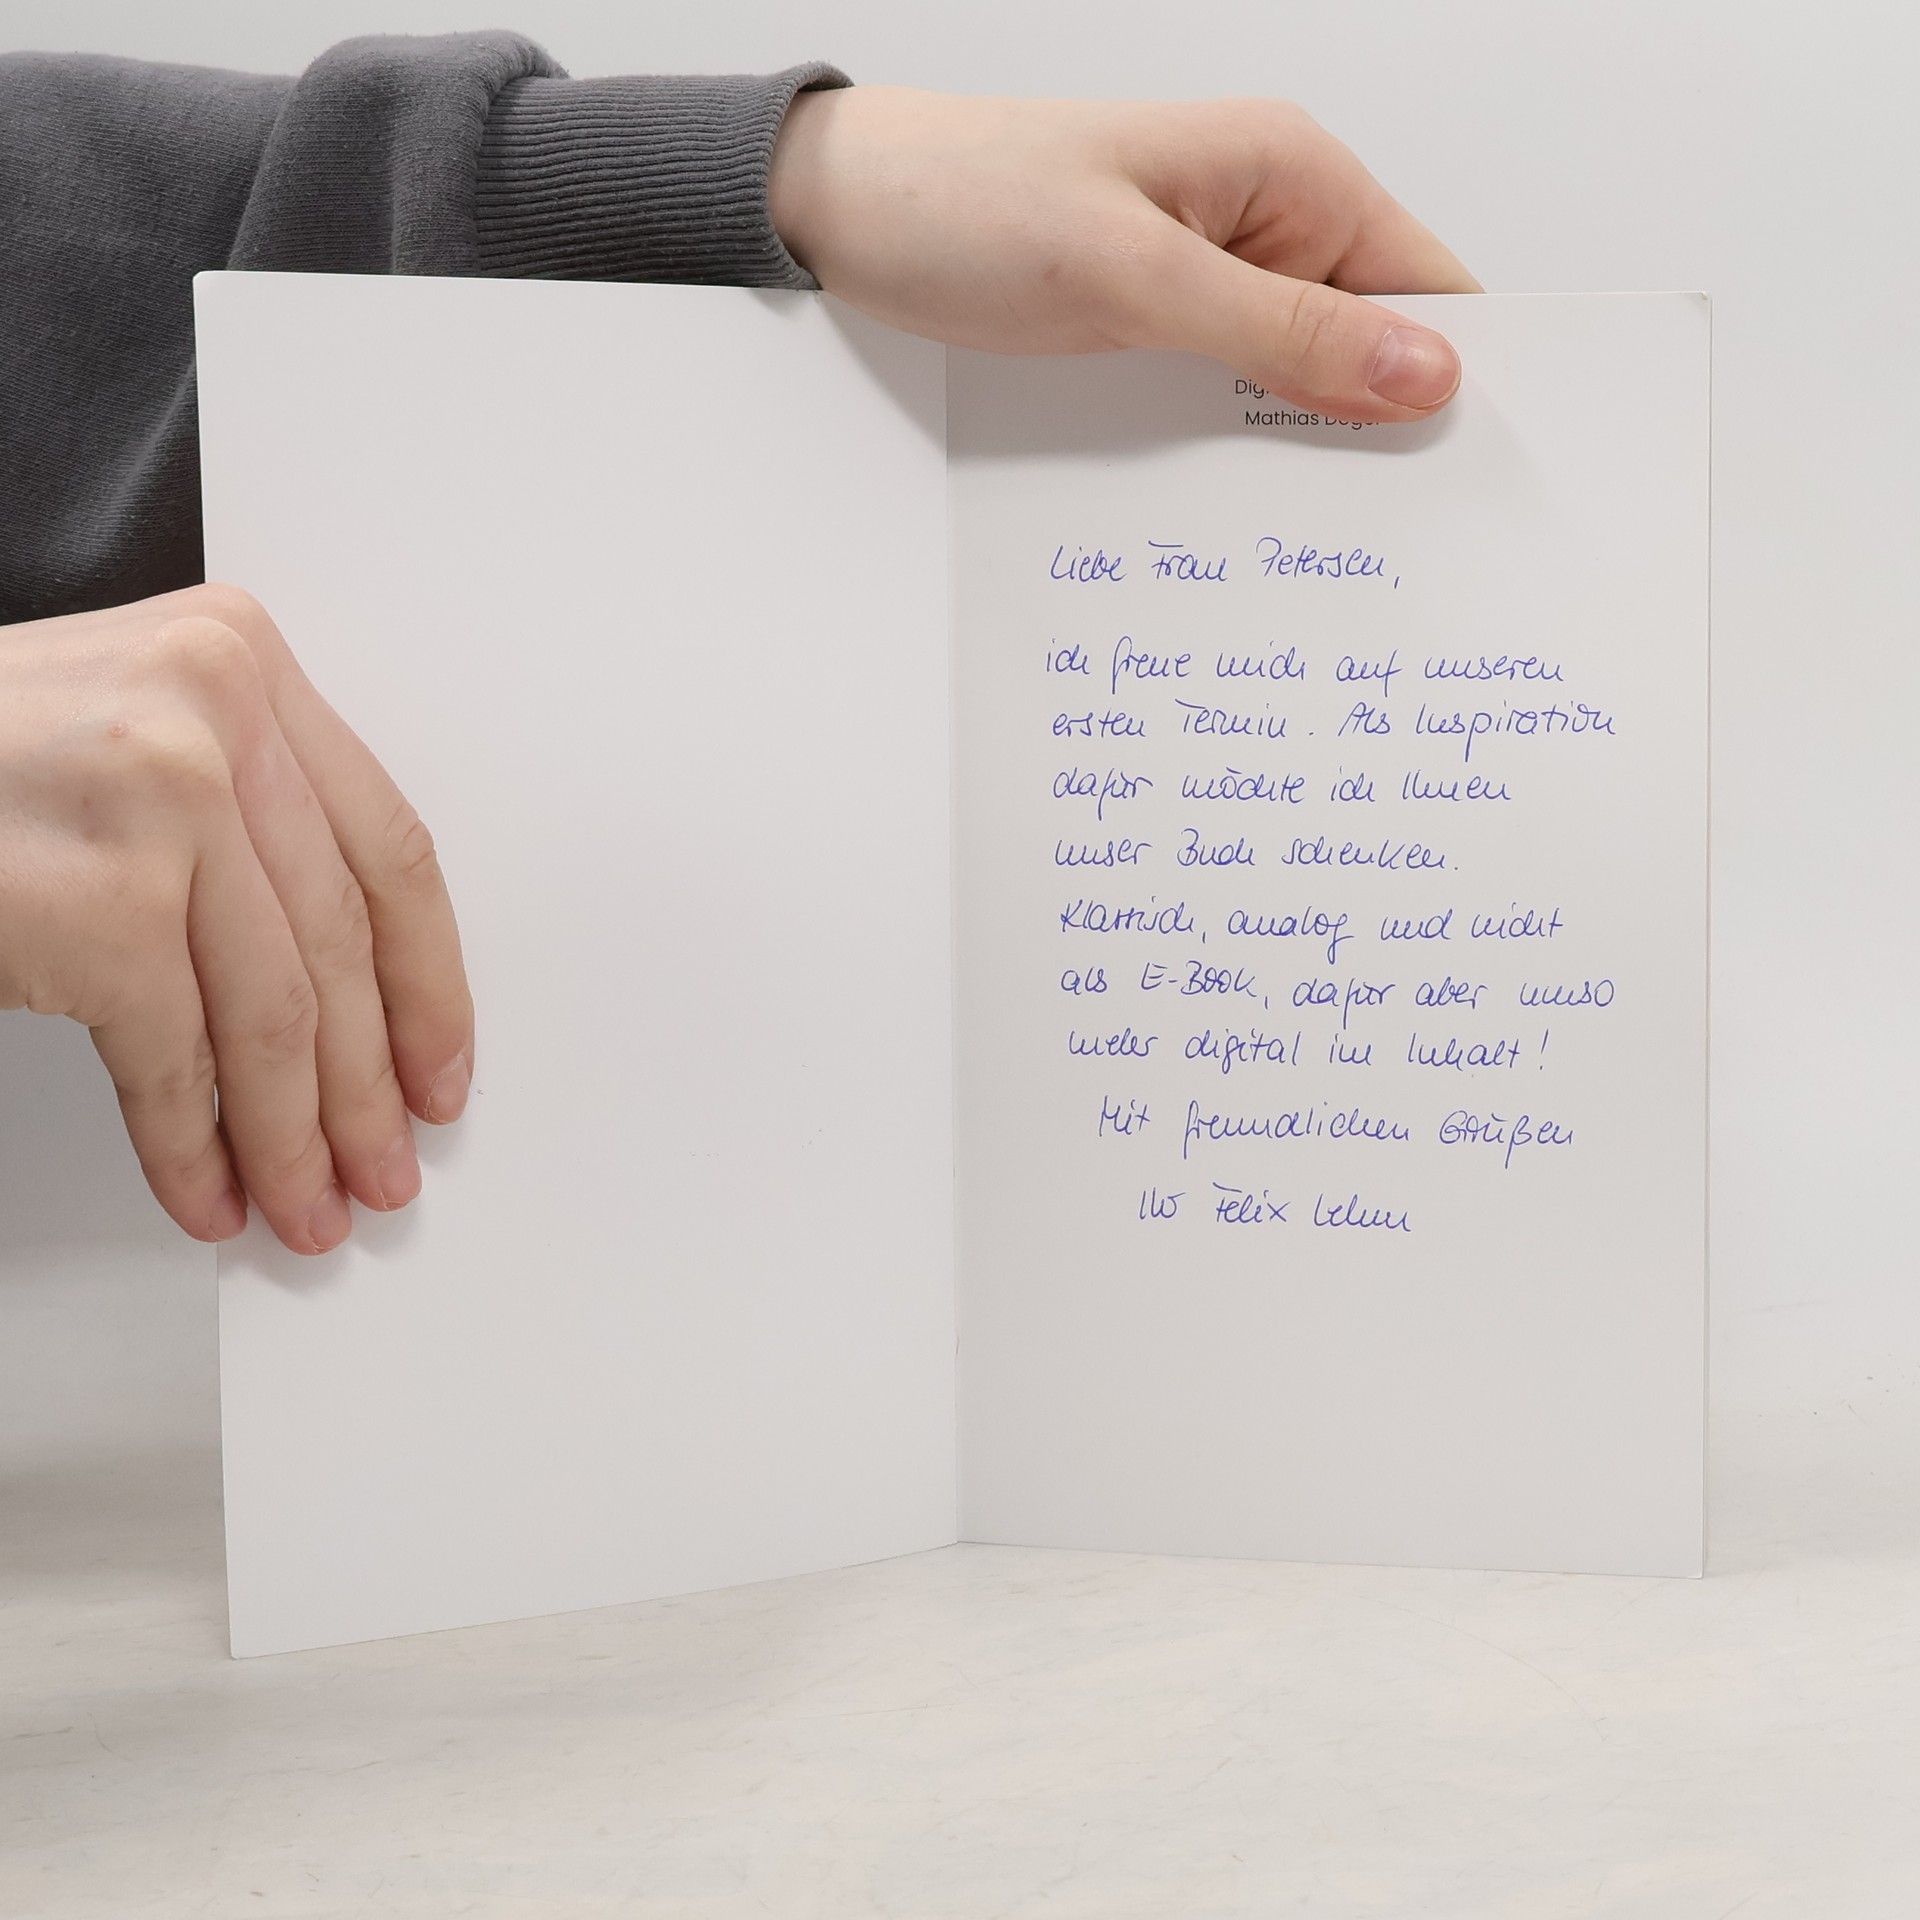 Mathias
Liebe Frau Petersen,
ich freue mich auf unseren
ersten Termin. Als Inspiration
dafür möchte ich Ihnen
unser Buch schenken.
Klassisch, analog und nicht
als E-Book, dafür aber umso
mehr digital im Inhalt!
Mit freundlichen Grüßen
Ihr Felix Lehm